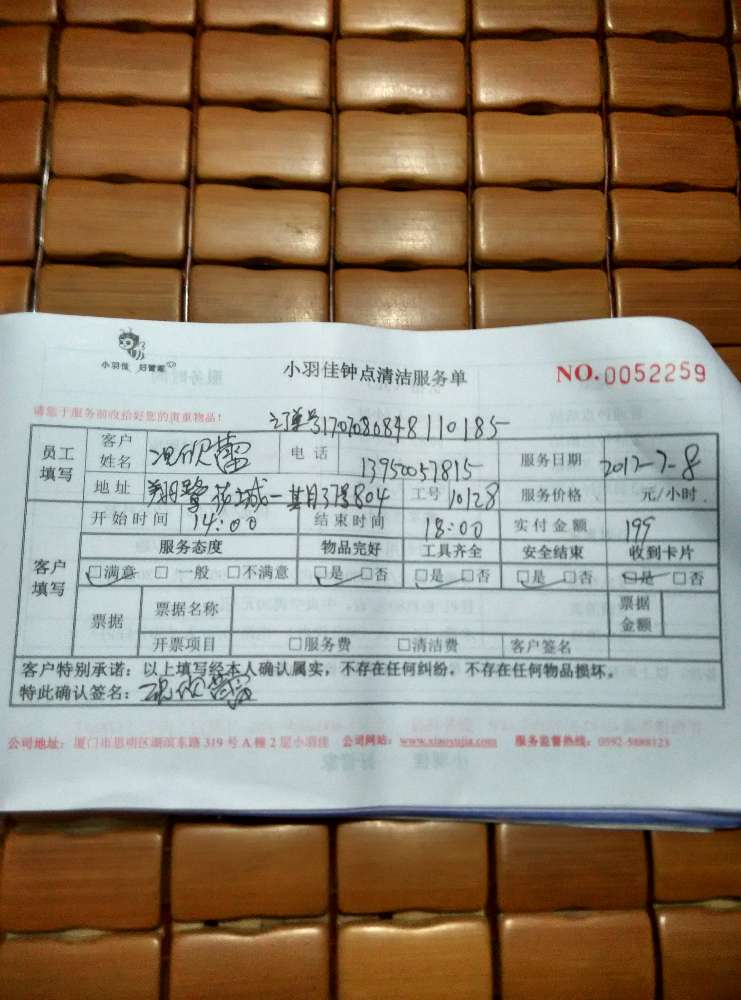 小羽佳 好管家
小羽佳钟点清洁服务单 NO.0052259
请您于服务前收拾好您的贵重物品!
订单号1707080848110185
员工填写 客户姓名 电话 13950057815 服务日期 2017-7-8
地址 翔鹭花城一期37号804 工号 10128 服务价格 元/小时
客户填写 开始时间 14:00 结束时间 18:00 实付金额 199
服务态度 物品完好 工具齐全 安全结束 收到卡片
□满意 □一般 □不满意 □是 □否 □是 □否 □是 □否 □是 □否
票据 票据名称 票据金额
开票项目 □服务费 □清洁费 客户签名
客户特别承诺:以上填写经本人确认属实,不存在任何纠纷,不存在任何物品损坏。
特此确认签名:
公司地址:厦门市思明区湖滨东路319号A幢2层小羽佳 公司网站:www.xiaoyujia.com 服务监督热线:0592-5888123